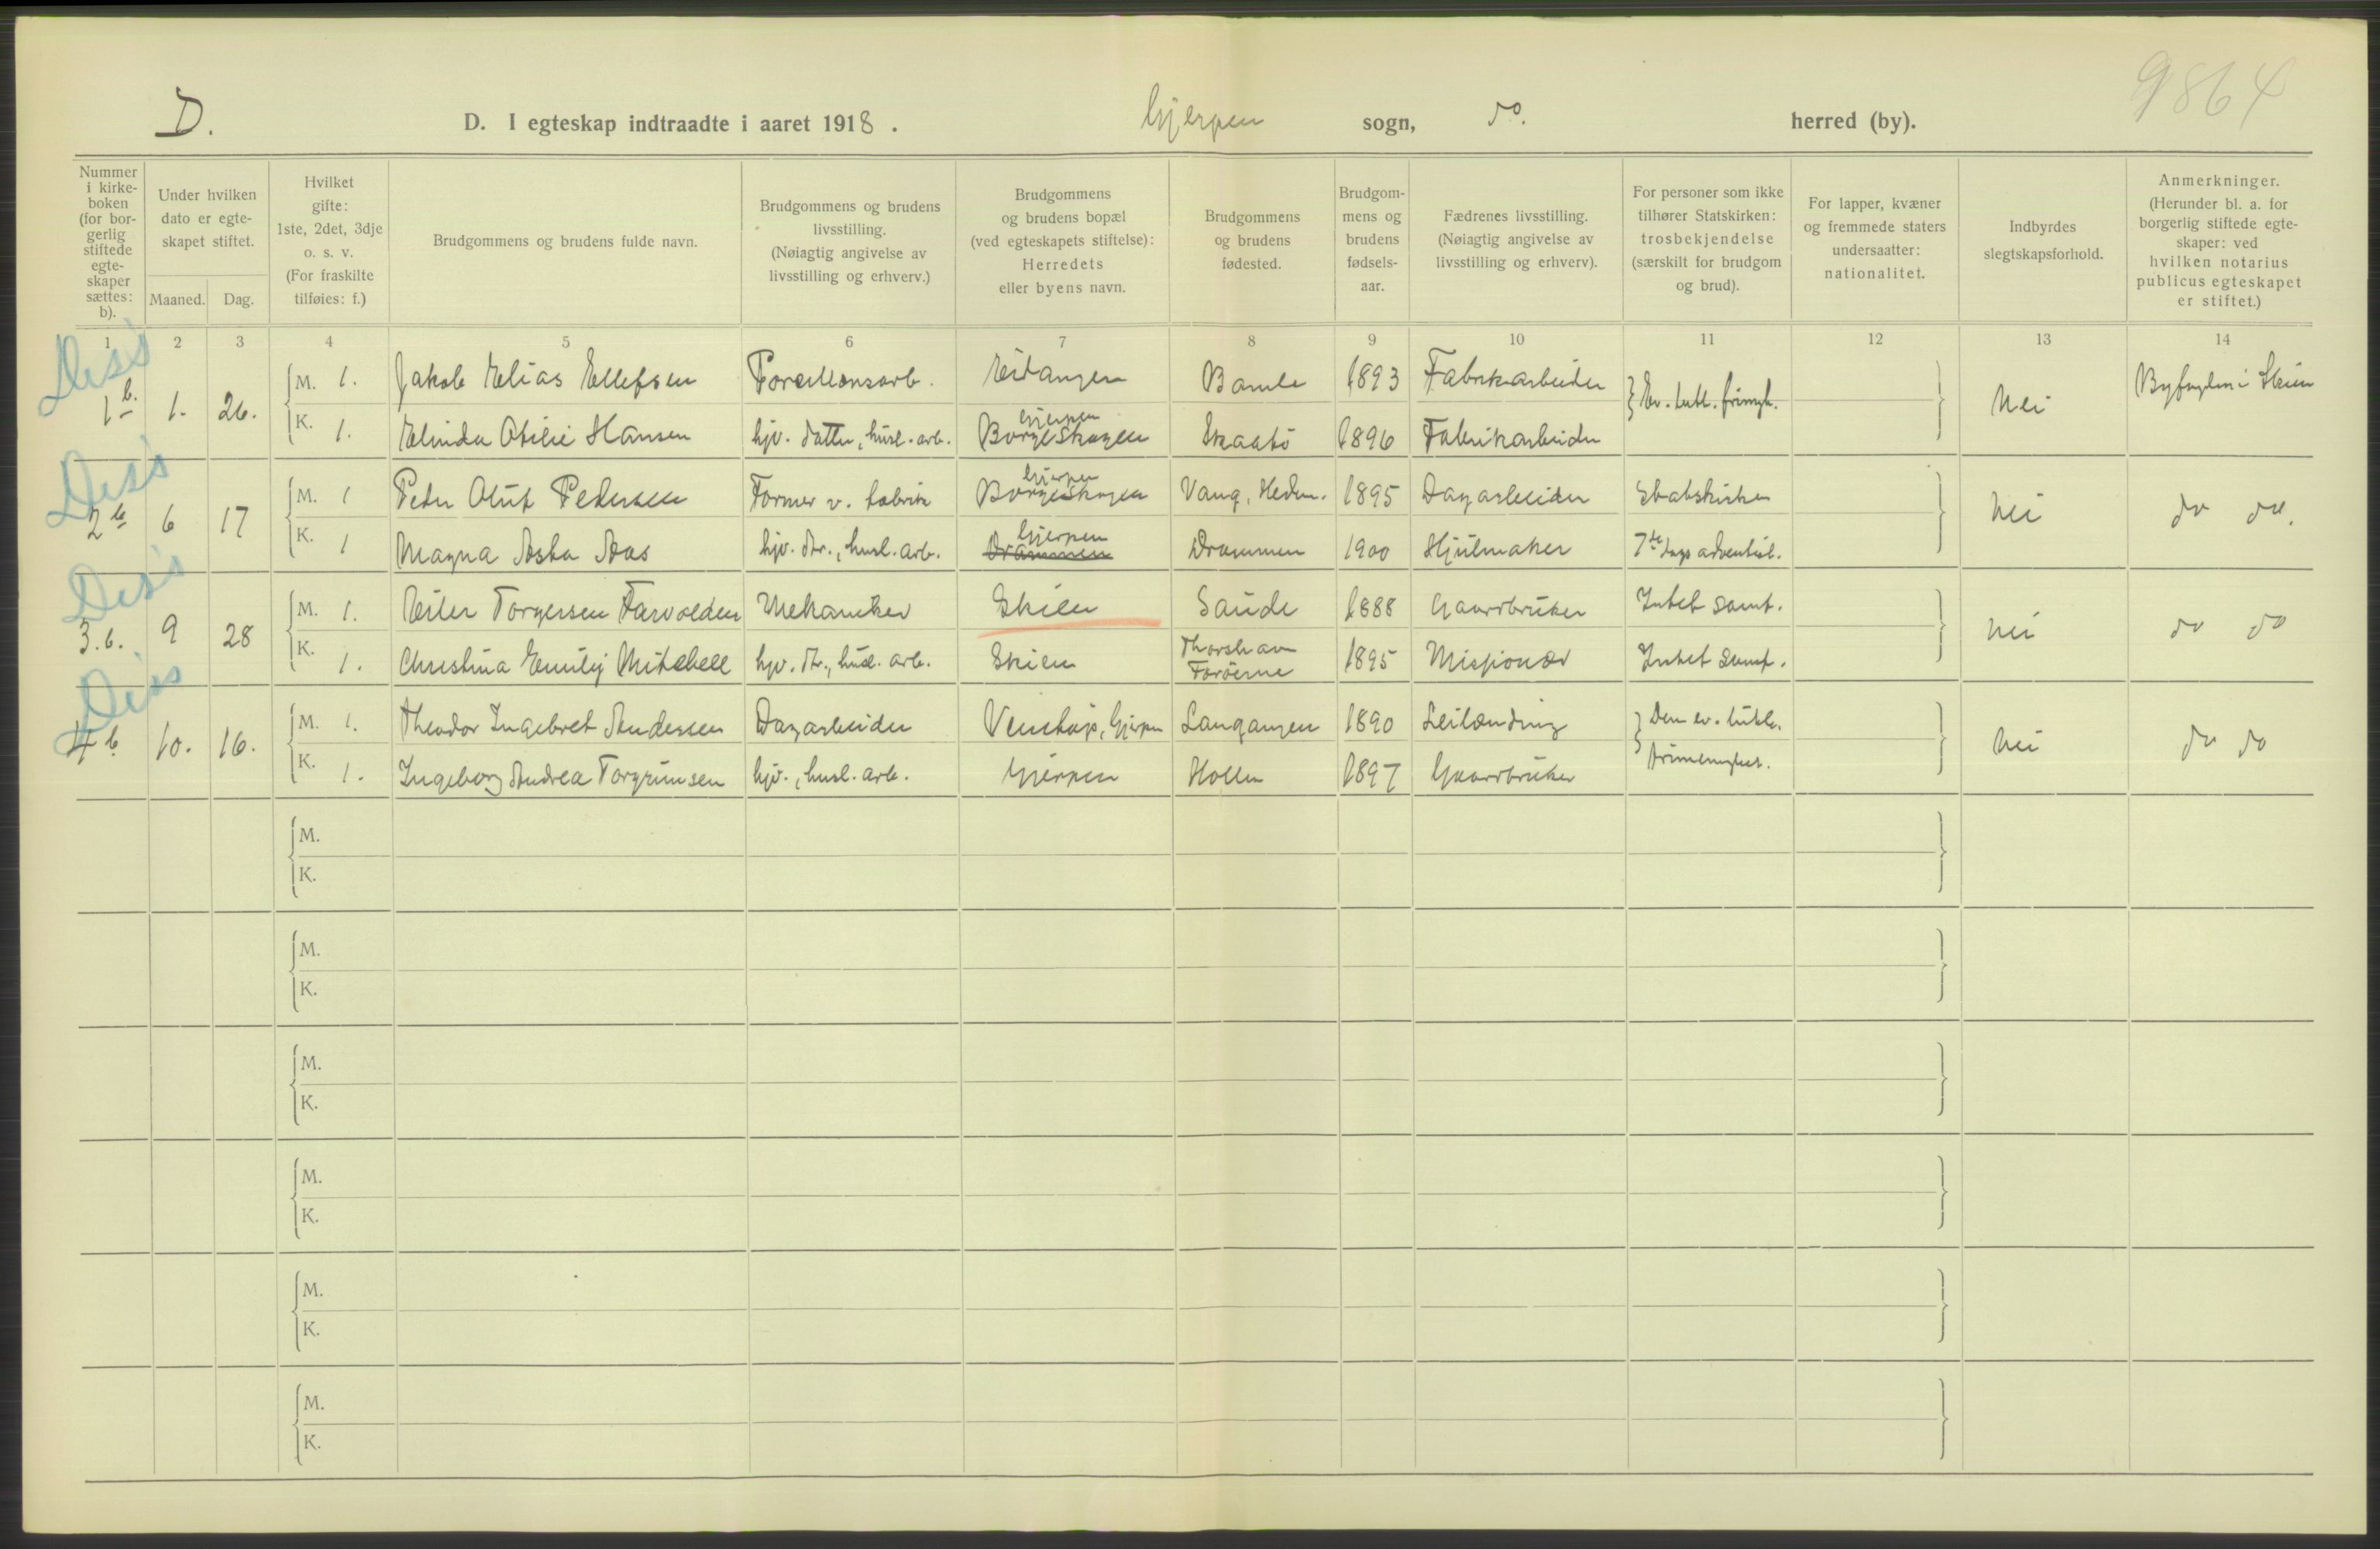 D.
D. I egteskap indtraadte i aaret 1918.
Gjerpen sogn, do. herred (by).
9864
Nummer i kirke-boken (for bor-gerlig stiftede egte-skaper sættes: b).
Under hvilken dato er egte-skapet stiftet.
Maaned. Dag.
Hvilket gifte: 1ste, 2det, 3dje o. s. v. (For fraskilte tilføies: f.)
Brudgommens og brudens fulde navn.
Brudgommens og brudens livsstilling. (Nøiagtig angivelse av livsstilling og erhverv.)
Brudgommens og brudens bopæl (ved egteskapets stiftelse): Herredets eller byens navn.
Brudgommens og brudens fødested.
Brudgom-mens og brudens fødsels-aar.
Fædrenes livsstilling. (Nøiagtig angivelse av livsstilling og erhverv).
For personer som ikke tilhører Statskirken: trosbekjendelse (særskilt for brudgom og brud).
For lapper, kvæner og fremmede staters undersaatter: nationalitet.
Indbyrdes slegtskapsforhold.
Anmerkninger. (Herunder bl. a. for borgerlig stiftede egte-skaper: ved hvilken notarius publicus egteskapet er stiftet.)
1 2 3 4 5 6 7 8 9 10 11 12 13 14
Diss
1 b. 1. 26. M. 1. Jakob Elias Ellefsen Porcellænsarb. Eidanger Bamle 1893 Fabrikarbeider Ev. luth. frimgh. Nei Byfogden i Skien
K. 1. Elinda Otilie Hansen hjv. datter, husl. arb. Gjerpen Borgeskogen Skaatö 1896 Fabrikarbeider
Diss
2 b 6 17 M. 1 Peder Oluf Pedersen Former v. fabrik Gjerpen Borgeskogen Vang, Hedm. 1895 Dagarbeider Statskirken Nei do do.
K. 1 Magna Asta Aas hjv. dtr., husl. arb. Gjerpen Drammen Drammen 1900 Hjulmaker 7de dags adventist.
Diss
3. b. 9 28 M. 1. Eiler Torgersen Farvolden Mekaniker Skien Saude 1888 Gaardbruker Intet samf. Nei do do
K. 1. Christina Emily Mitchell hjv. dtr., husl. arb. Skien Thorshavn Færöerne 1895 Missionær Intet samf.
Diss
4 b 10. 16. M. 1. Theodor Ingebret Andersen Dagarbeider Venstøp, Gjerpen Langangen 1890 Leilænding Den ev. luth. frimenighet. Nei do do
K. 1. Ingeborg Andrea Torgrimsen hjv., husl. arb. Gjerpen Hollen 1897 Gaardbruker
M.
K.
M.
K.
M.
K.
M.
K.
M.
K.
M.
K.